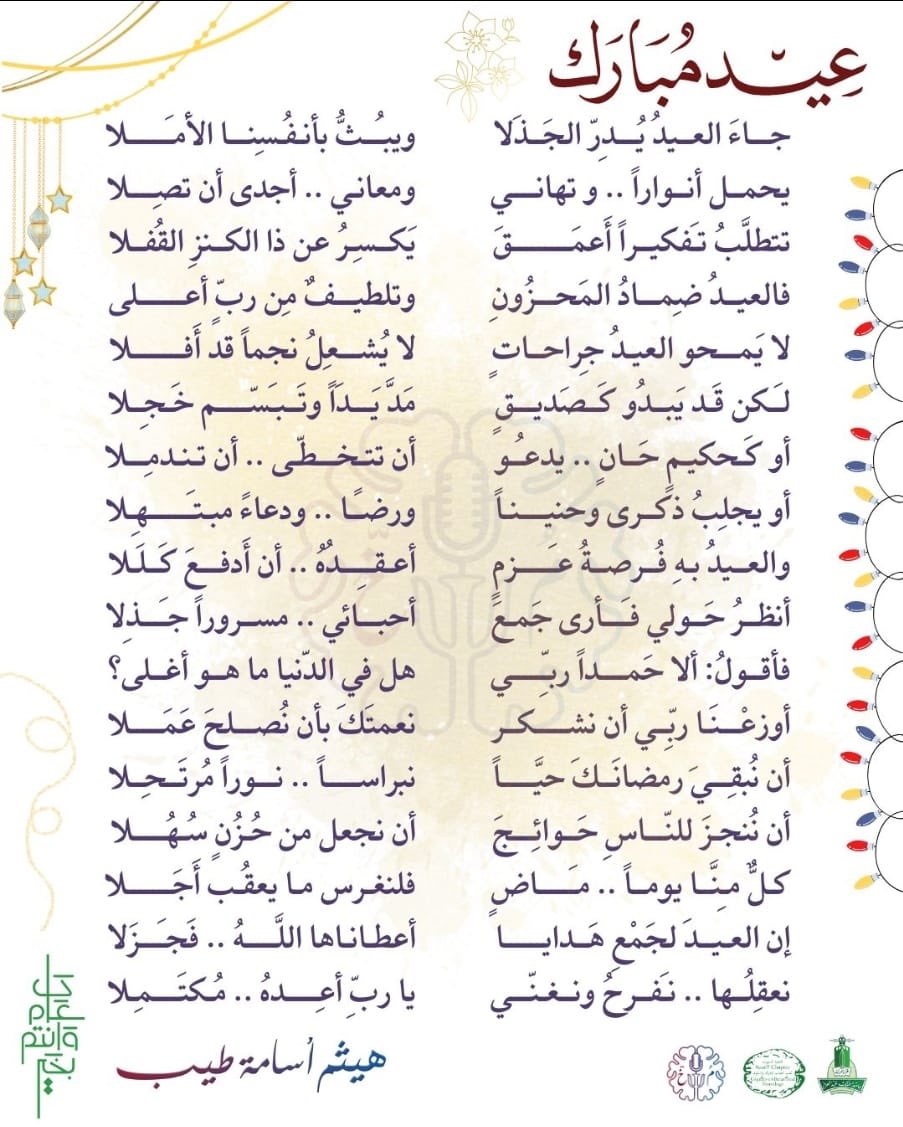 عيد مبارك
جاءَ العيدُ يُدرّ الجَذَلا ويبُثُّ بأنفُسِنا الأمَلا
يحمل أنواراً .. و تهاني ومعاني .. أجدى أن تصِلا
تتطلَّبُ تَفكيراً أعمَقَ يَكسِرُ عن ذا الكنزِ القُفلا
فالعيدُ ضِمادُ المَحزُونِ وتلطيفٌ مِن ربّ أعلى
لا يَمحو العيدُ جِراحاتٍ لا يُشعِلُ نجماً قد أَفَلا
لَكن قَد يَبدُو كَصَديقٍ مَدَّ يَدَاً وتَبَسّم خَجِلا
أو كَحكيمٍ حَانٍ .. يدعُو أن تتخطّى .. أن تندمِلا
أو يجلِبُ ذكرى وحنيناً ورضًا .. ودعاءً مبتَهِلا
والعيدُ بهِ فُرصةُ عَزمٍ أعقِدُهُ .. أن أَدفعَ كَلَلا
أنظرُ حَولي فَأرى جَمعَ أحبائي .. مسروراً جَذِلا
فأقولُ: ألا حَمداً ربّي هل في الدّنيا ما هو أغلى؟
أوزعْنَا ربّي أن نشكر نعمتَكَ بأن نُصلحَ عَمَلا
أن نُبقِيَ رمضانَكَ حيَّاً نبراساً .. نوراً مُرتَحِلا
أن نُنجزَ للنّاسِ حَوائِجَ أن نجعل من حُزُنٍ سُهُلا
كلٌّ مِنَّا يوماً .. مَاضٍ فلنغرس ما يعقُب أَجَلا
إن العيدَ لجَمْعِ هَدايا أعطاناها اللَّهُ .. فَجَزَلا
نعقِلُها .. نَفرحُ ونغنّي يا ربِّ أعِدهُ .. مُكتَمِلا
هيثم أسامة طيب
كل عام وأنتم بخير